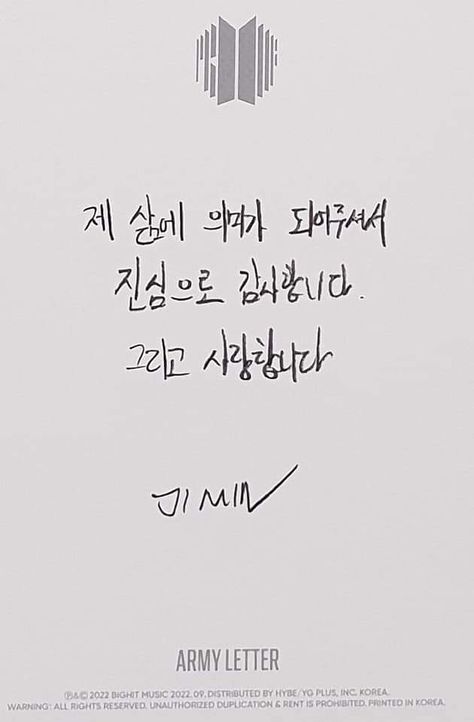 제 삶에 의미가 되어주셔서
진심으로 감사합니다.
그리고 사랑합니다
JIMIN
ARMY LETTER
℗&© 2022 BIGHIT MUSIC 2022. 09. DISTRIBUTED BY HYBE/YG PLUS, INC. KOREA.
WARNING: ALL RIGHTS RESERVED. UNAUTHORIZED DUPLICATION & RENT IS PROHIBITED. PRINTED IN KOREA.